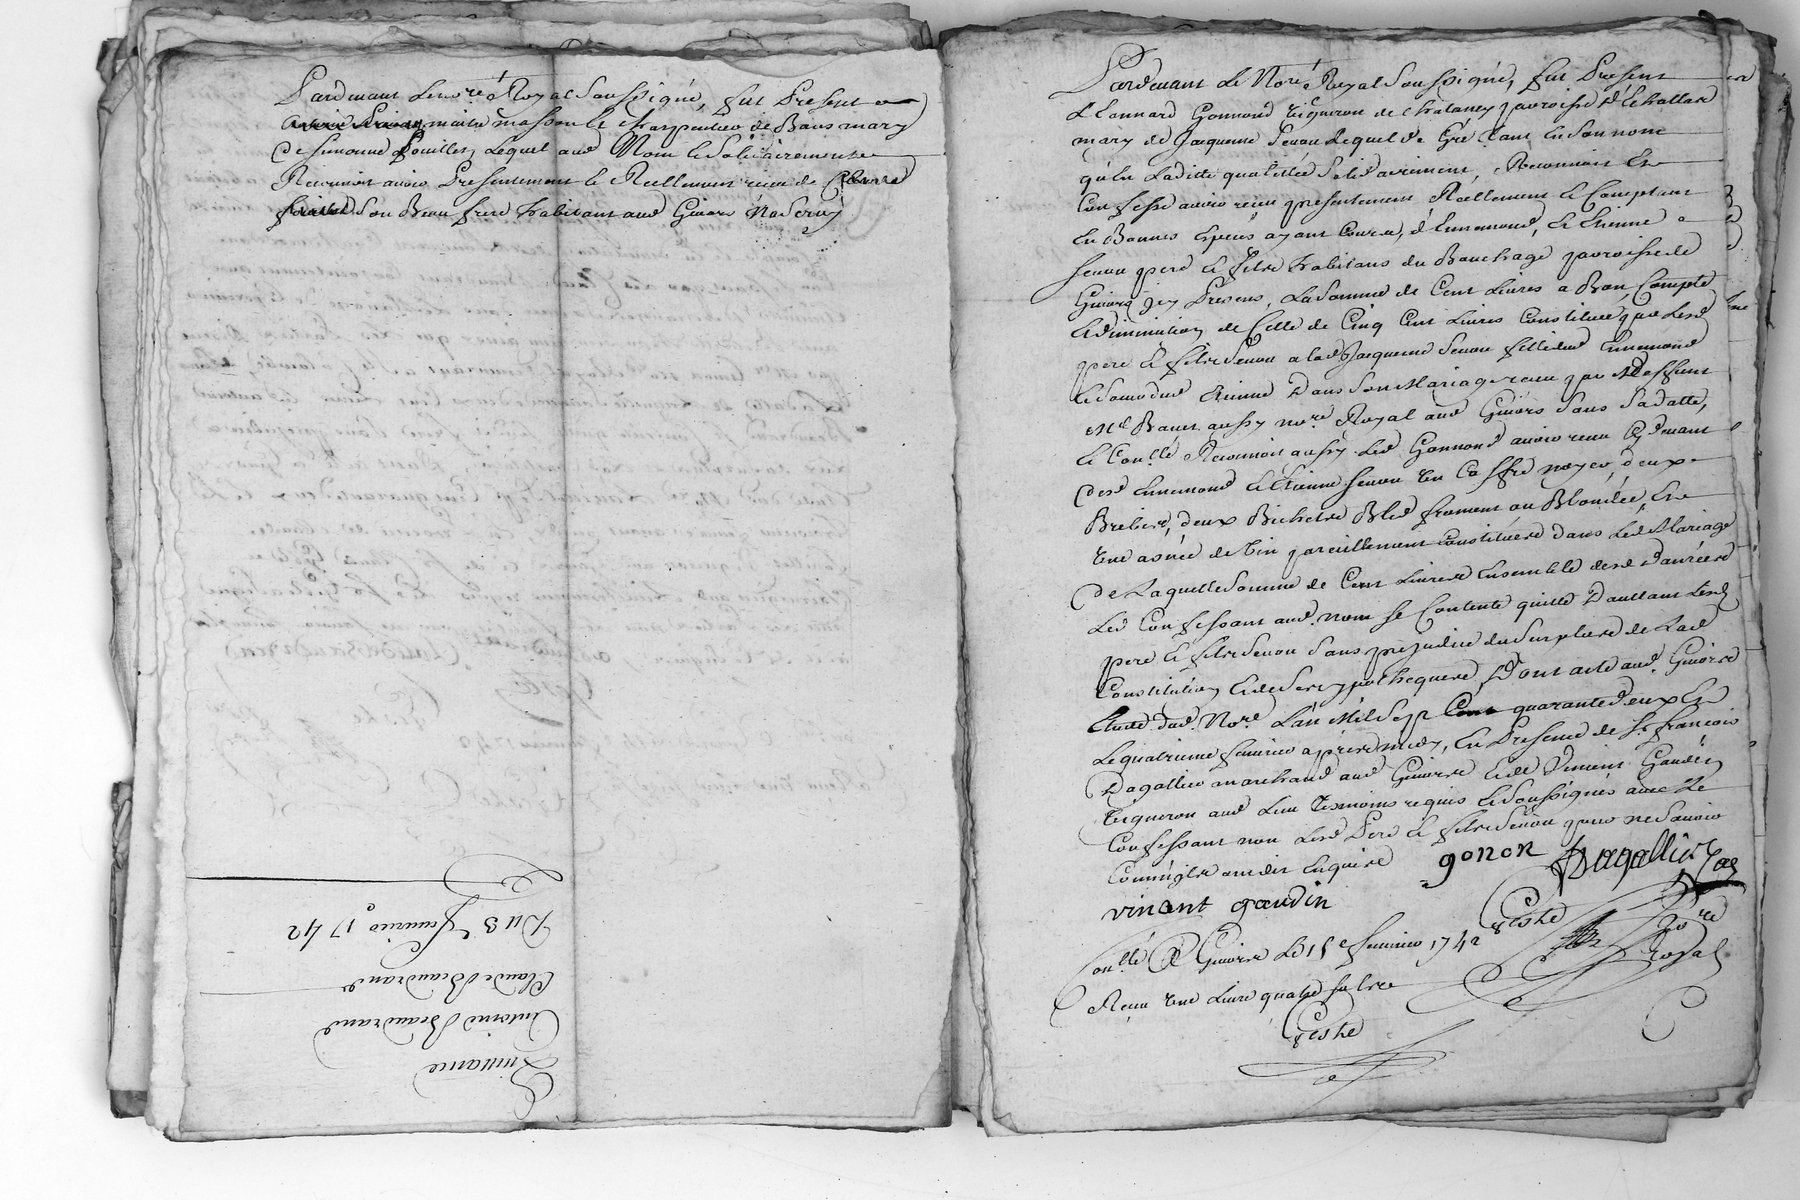 Pardevant le no.re Royal Soussigné, fut Present
maitre masson & charpentier de Bans mary
de Simonne Souiller, Lequel aud Nom & Solidairement
Reconnoit avoir Presentement & Reellement receu de
son Beau frere habitant aud Givors
Quittance
Antoine Beaudrand
Claude Beaudrand
Du 3e Fevrier 1742
Pardevant Le No.re Royal Soussigné, fut Present
Leonnard Gonnond vigneron de Chataney parroisse d'Echallas
mary de Jaqueme Senou Lequel de Gré tant en son nom
qu'en Ladite qualittée Solidairement, Reconnoit Et
Confesse avoir receu presentement Reellement & Comptant
En Bonnes Especes ayant Cours, d'Ennemond, & Etienne
Senou pere & fils habitans du Bauchage parroisse de
Givors icy Presens, La somme de Cent Livres a Bon Compte
& diminution de Celle de Cinq Cent Livres Constituée par Lesd
pere & fils Senou a lad Jaqueme Senou fille dud Ennemond
& Soeur dud Etienne Dans son Mariage receu par
Me Baner aussy no.re Royal aud Givors sous sa datte,
& Con.llé Reconnoit aussy led Gonnond avoir receu Cy devant
Desd Ennemond & Etienne Senou un Coffre noyer, deux
Brebis, deux Bichets Bled froment ou Blondée, Et
une asnée de vin pareillement Constitués dans led Mariage
De Laquelle Somme de Cent Livres Ensemble desd danrées
Led Confessant aud. nom se Contente quitte D'aultant Lesd
pere & fils Senou Sans prejudice du Surplus de Lad
Constitution & de ses hypotheques, Dont acte aud. Givors
Etude dud No.re L'an Mil Sept Cent quarante deux Et
Le quatrieme fevrier apres midy, En Presence de Sr françois
Dagallier marchand aud Givors & de Vincent Gaudin
vigneron aud Lieu Tesmoins requis & Soussignés avec Le
Confessant non Lesd Pere & fils Senou pour ne Sçavoir
Comm'ils ont dit Enquis gonon Dagallier
vincent gaudin
Geshe No.re Royal
Con.llé A Givors Le 15e fevrier 1742
Receu une Livre quatre sols
Geshe